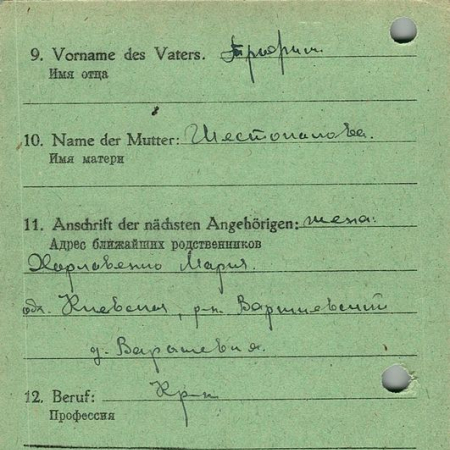 9. Vorname des Vaters. Трофим
Имя отца
10. Name der Mutter: Шестопалова.
Имя матери
11. Anschrift der nächsten Angehörigen: жена:
Адрес ближайших родственников
Мария.
обл. Киевская, р-н.
12. Beruf: Кр-н
Профессия